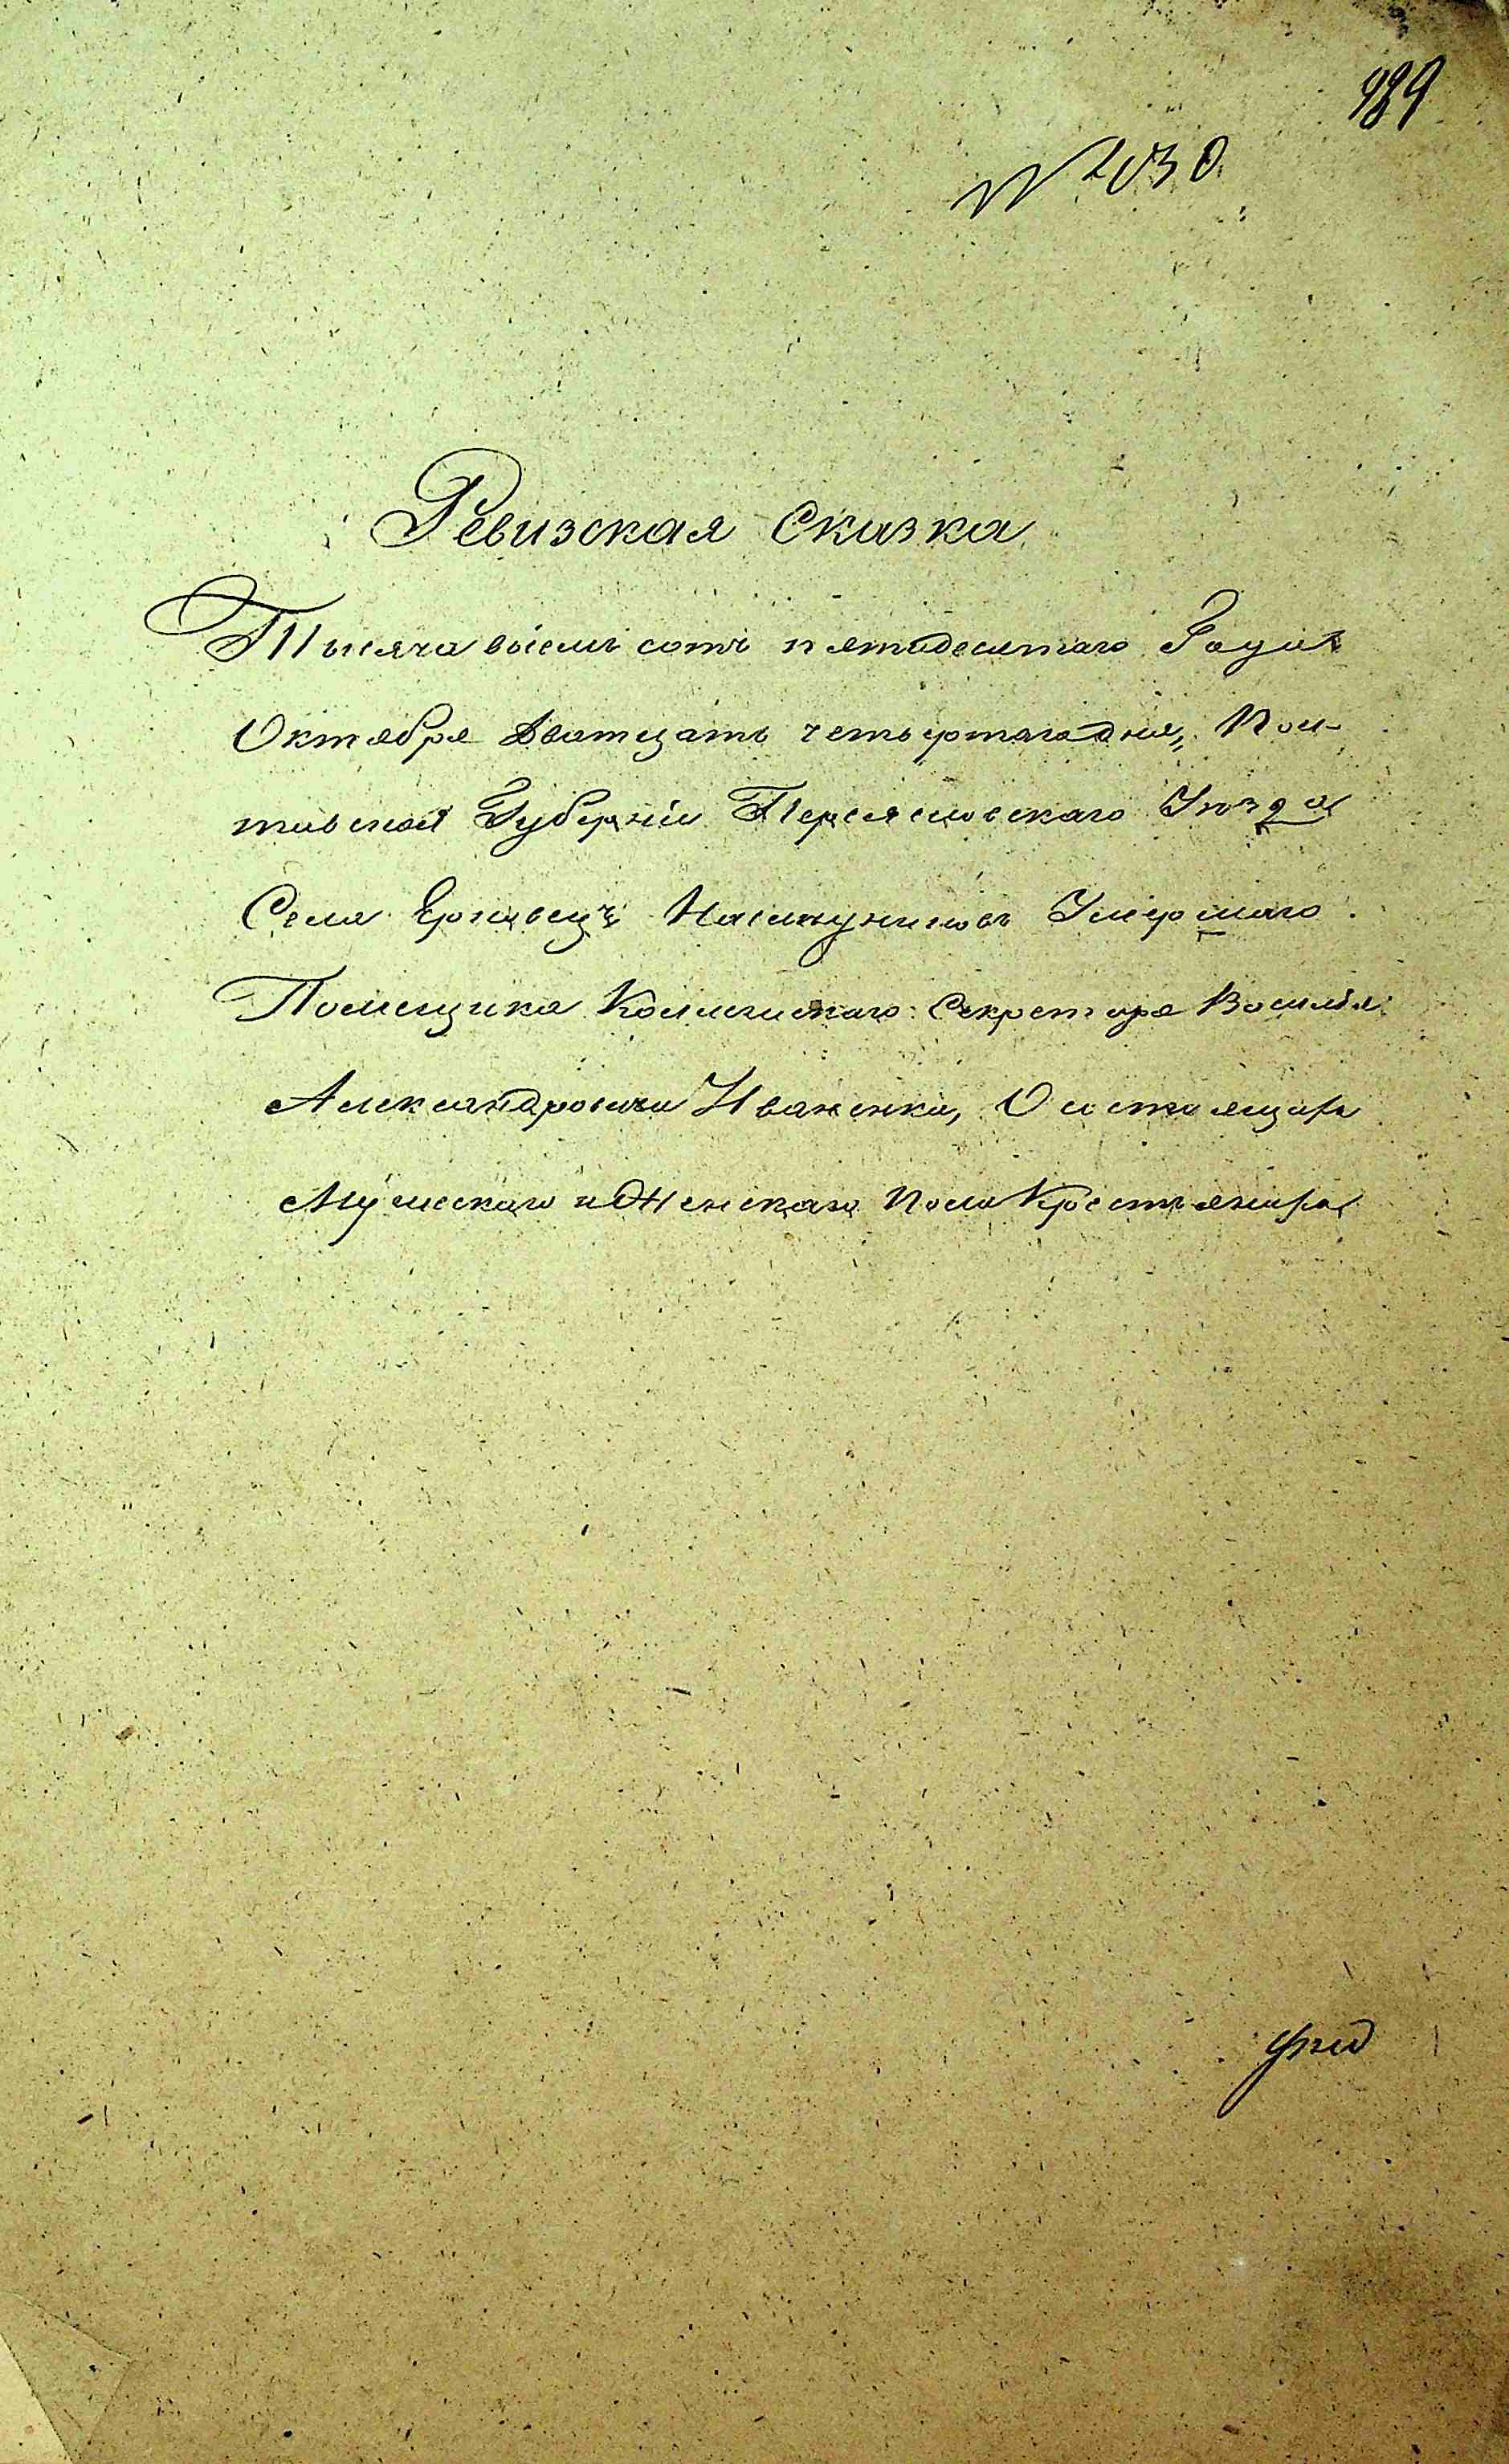 489
№ 1030
Ревизская Сказка
Тысяча восемь сотъ пятидесятаго Года
Октября Дватцать четьертагадня, Пол-
тавской Губерніи Переясловскаго Уѣзда
Села Ерковецъ Наслѣдниковъ Умершаго
Помещика Коллегискаго Секретаря Василія
Александровича Иваненка, О состоящихъ
Мужескаго и Женскаго пола Крестьянахъ